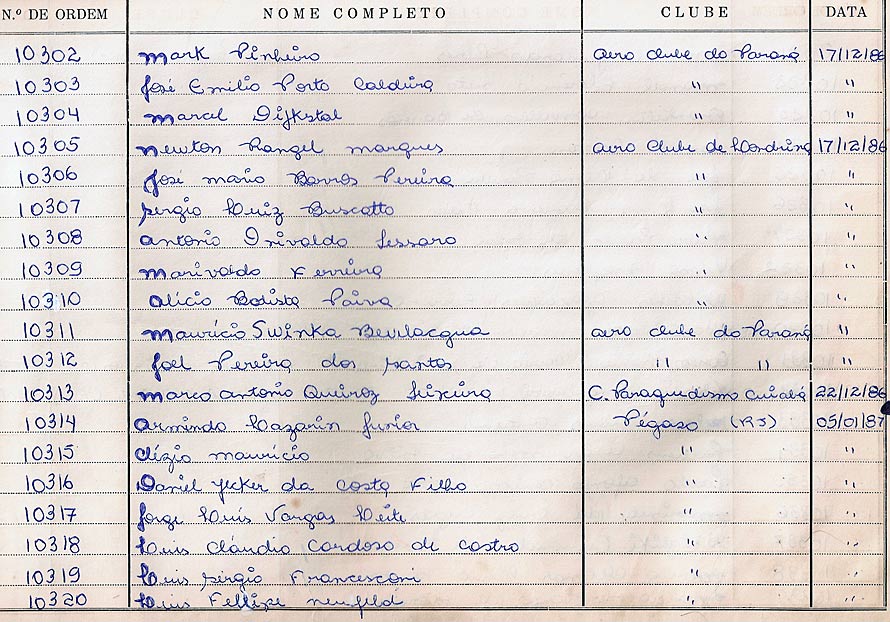 N.º DE ORDEM NOME COMPLETO CLUBE DATA
10302 Mark Pinheiro Aero Clube do Paraná 17/12/86
10303 José Emilio Porto Caldeira " "
10304 Marcel Dijkstal " "
10305 Newton Rangel Marques Aero Clube de Londrina 17/12/86
10306 José Mario Barros Pereira " "
10307 Sergio Luiz Buscatto " "
10308 Antonio Orivaldo Sessaro " "
10309 Marivaldo Ferreira " "
10310 Alicio Batista Paiva " "
10311 Mauricio Swinka Bevilacqua Aero Clube do Paraná "
10312 Joel Pereira dos Santos " " "
10313 Marco Antonio Queiroz Teixeira C. Paraquedismo Cuiabá 22/12/86
10314 Armindo Lazarin Junior Pégaso (RJ) 05/01/87
10315 Clézio Mauricio " "
10316 Daniel Jecker da Costa Filho " "
10317 Jorge Luís Vargas Leite " "
10318 Luis Cláudio Cardoso de Castro " "
10319 Luis Sérgio Francesconi " "
10320 Luis Fellipe Neufeld " "